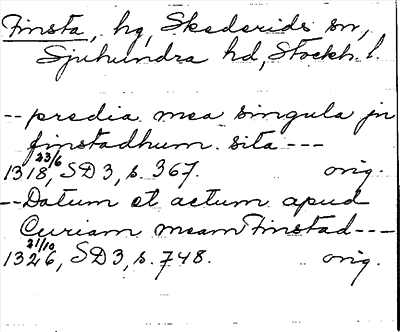 Finsta, hg, Skederids sn,
Sjuhundra hd, Stockh. l.
-- predia mea singula jn
finstadhum sita ---
1318 23/6, SD 3, s. 367. orig.
-- Datum et actum apud
Curiam meam Finstad ---
1326 21/10, SD 3, s. 748. orig.